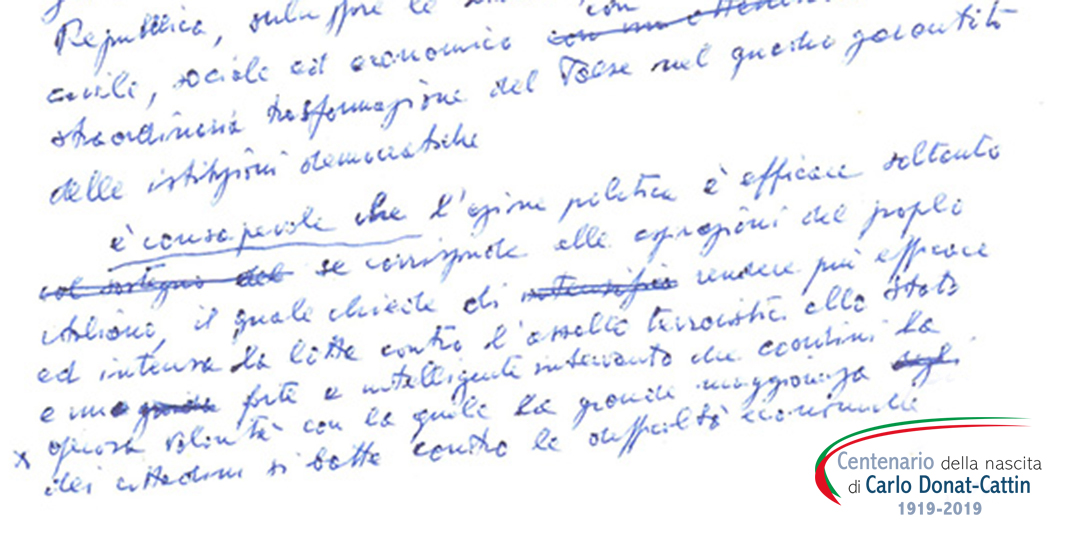 Repubblica, sviluppare le
con
civile, sociale ed economico con una
straordinaria trasformazione del Paese nel quadro garantito
delle istituzioni democratiche
è consapevole che l'azione politica è efficace soltanto
col sostegno del se corrisponde alle aspirazioni del popolo
italiano, il quale chiede di intensifica rendere più efficace
ed intensa la lotta contro l'assalto terroristico allo Stato
e un forte e intelligente intervento che coordini la
operosa volontà con la quale la grande maggioranza degli
x dei cittadini si batte contro le difficoltà economiche
Centenario della nascita
di Carlo Donat-Cattin
1919-2019